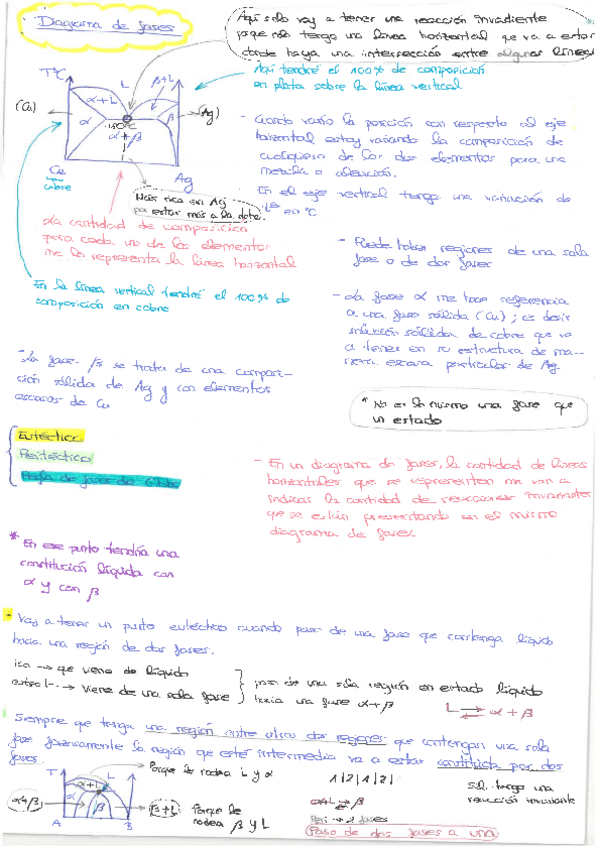 Diagrama de fases
Aquí solo voy a tener una reacción invariente
porque solo tengo una línea horizontal que va a estar
donde haya una intersección entre algunas líneas
Aquí tendré el 100% de composición
en plata sobre la línea vertical
T°C
L
β+L
α+L
(Cu)
α
β
(Ag)
α+β
Cu
cobre
Ag
Más rica en Ag
por estar más a la dcha.
- Cuando varío la posición con respecto al eje
horizontal estoy variando la composición de
cualquiera de los dos elementos para una
mezcla o aleación.
En el eje vertical tengo una variación de
tª en °C
La cantidad de composición
para cada uno de los elementos
me la representa la línea horizontal
- Puede haber regiones de una sola
fase o de dos fases
En la línea vertical tendré el 100% de
composición en cobre
- La fase α me hace referencia
a una fase sólida (Cu); es decir
solución sólida de cobre que va
a tener en su estructura de ma-
nera escasa partículas de Ag.
- La fase β se trata de una composi-
ción sólida de Ag y con elementos
escasos de Cu
* No es lo mismo una fase que
un estado
Eutéctico
Peritéctico
Regla de fases de Gibbs
- En un diagrama de fases, la cantidad de líneas
horizontales que se representen me van a
indicar la cantidad de reacciones invariantes
que se están presentando en el mismo
diagrama de fases
* En ese punto tendría una
constitución líquida con
α y con β
- Voy a tener un punto eutéctico cuando pase de una fase que contenga líquido
hacia una región de dos fases.
ica → que viene de líquido
→ viene de una sola fase
pasa de una sola región en estado líquido
hacia una fase α+β
L ⇌ α + β
Siempre que tenga una región entre otras dos regiones que contengan una sola
fase forzosamente la región que esté intermedia va a estar constituida por dos
fases.
Porque le rodea L y α
1|2|1|2|
solo tengo una
reacción invariante
T
L
α+L
α
β
α+β
A
B
β+L
Porque le
rodea β y L
α+L ⇌ β
Peri → 2 fases
Paso de dos fases a una